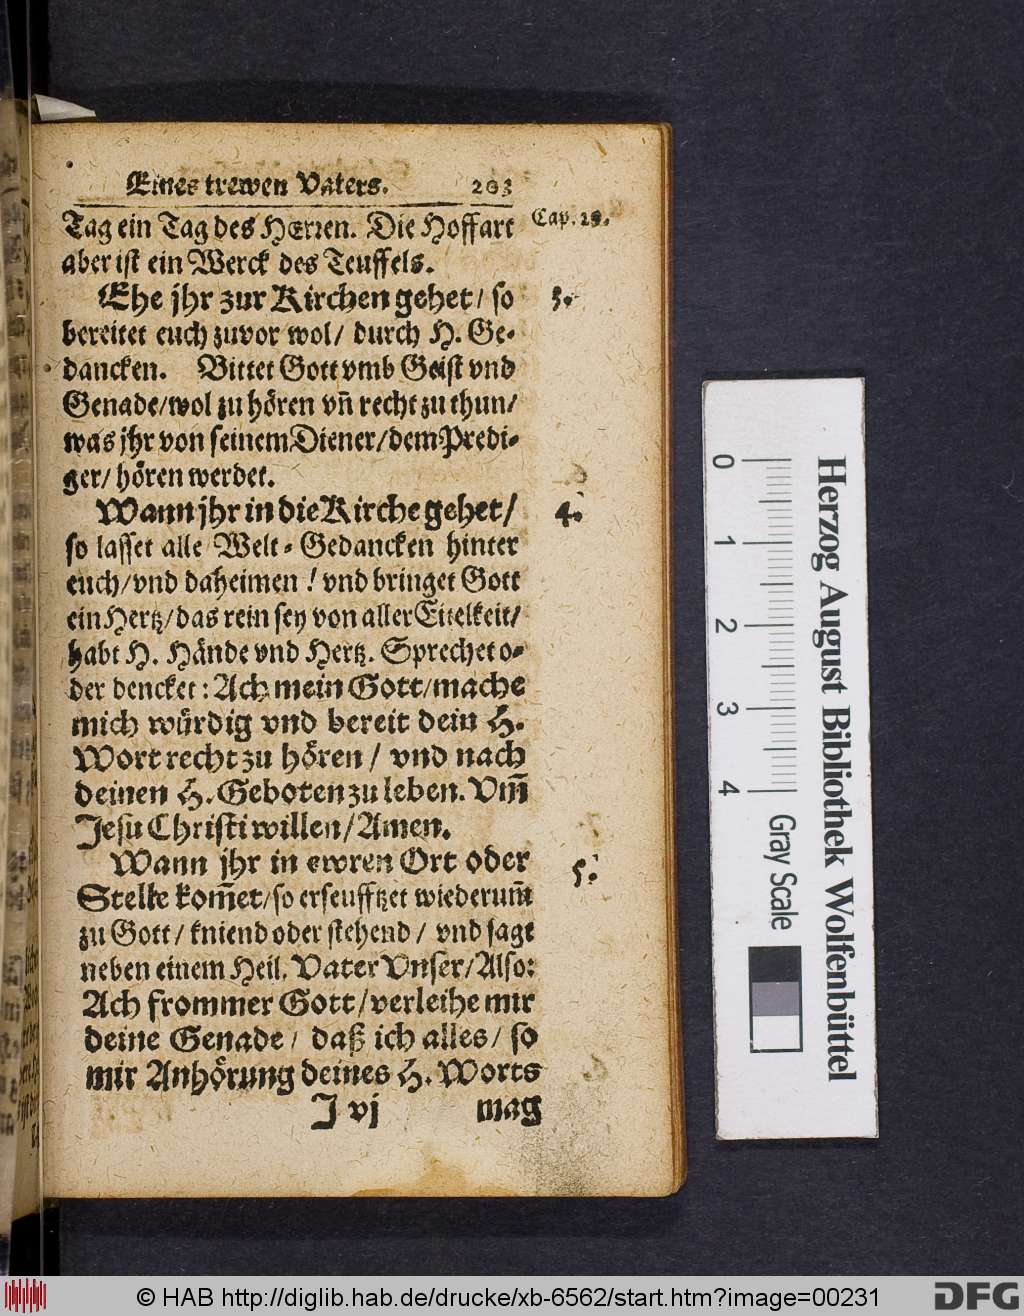 Eines trewen Vaters. 203
Tag ein Tag des HErren. Die Hoffart
Cap. 28.
aber ist ein Werck des Teuffels.
Ehe jhr zur Kirchen gehet / so
3.
bereitet euch zuvor wol / durch H. Ge-
dancken. Bittet Gott vmb Geist vnd
Genade / wol zu hören vñ recht zu thun /
was jhr von seinem Diener / dem Predi-
ger / hören werdet.
Wann jhr in die Kirche gehet /
4.
so lasset alle Welt-Gedancken hinter
euch / vnd daheimen ! vnd bringet Gott
ein Hertz / das rein sey von aller Eitelkeit /
habt H. Hände vnd Hertz. Sprechet o-
der dencket : Ach mein Gott / mache
mich würdig vnd bereit dein H.
Wort recht zu hören / vnd nach
deinen H. Geboten zu leben. Vm̃
Jesu Christi willen / Amen.
Wann jhr in ewren Ort oder
5.
Stelle kom̃et / so erseufftzet wiederum̃
zu Gott / kniend oder stehend / vnd sagt
neben einem Heil. Vater Vnser / Also:
Ach frommer Gott / verleihe mir
deine Genade / daß ich alles / so
mir Anhörung deines H. Worts
J vj mag
0 1 2 3 4
Gray Scale
Herzog August Bibliothek Wolfenbüttel
© HAB http://diglib.hab.de/drucke/xb-6562/start.htm?image=00231
DFG